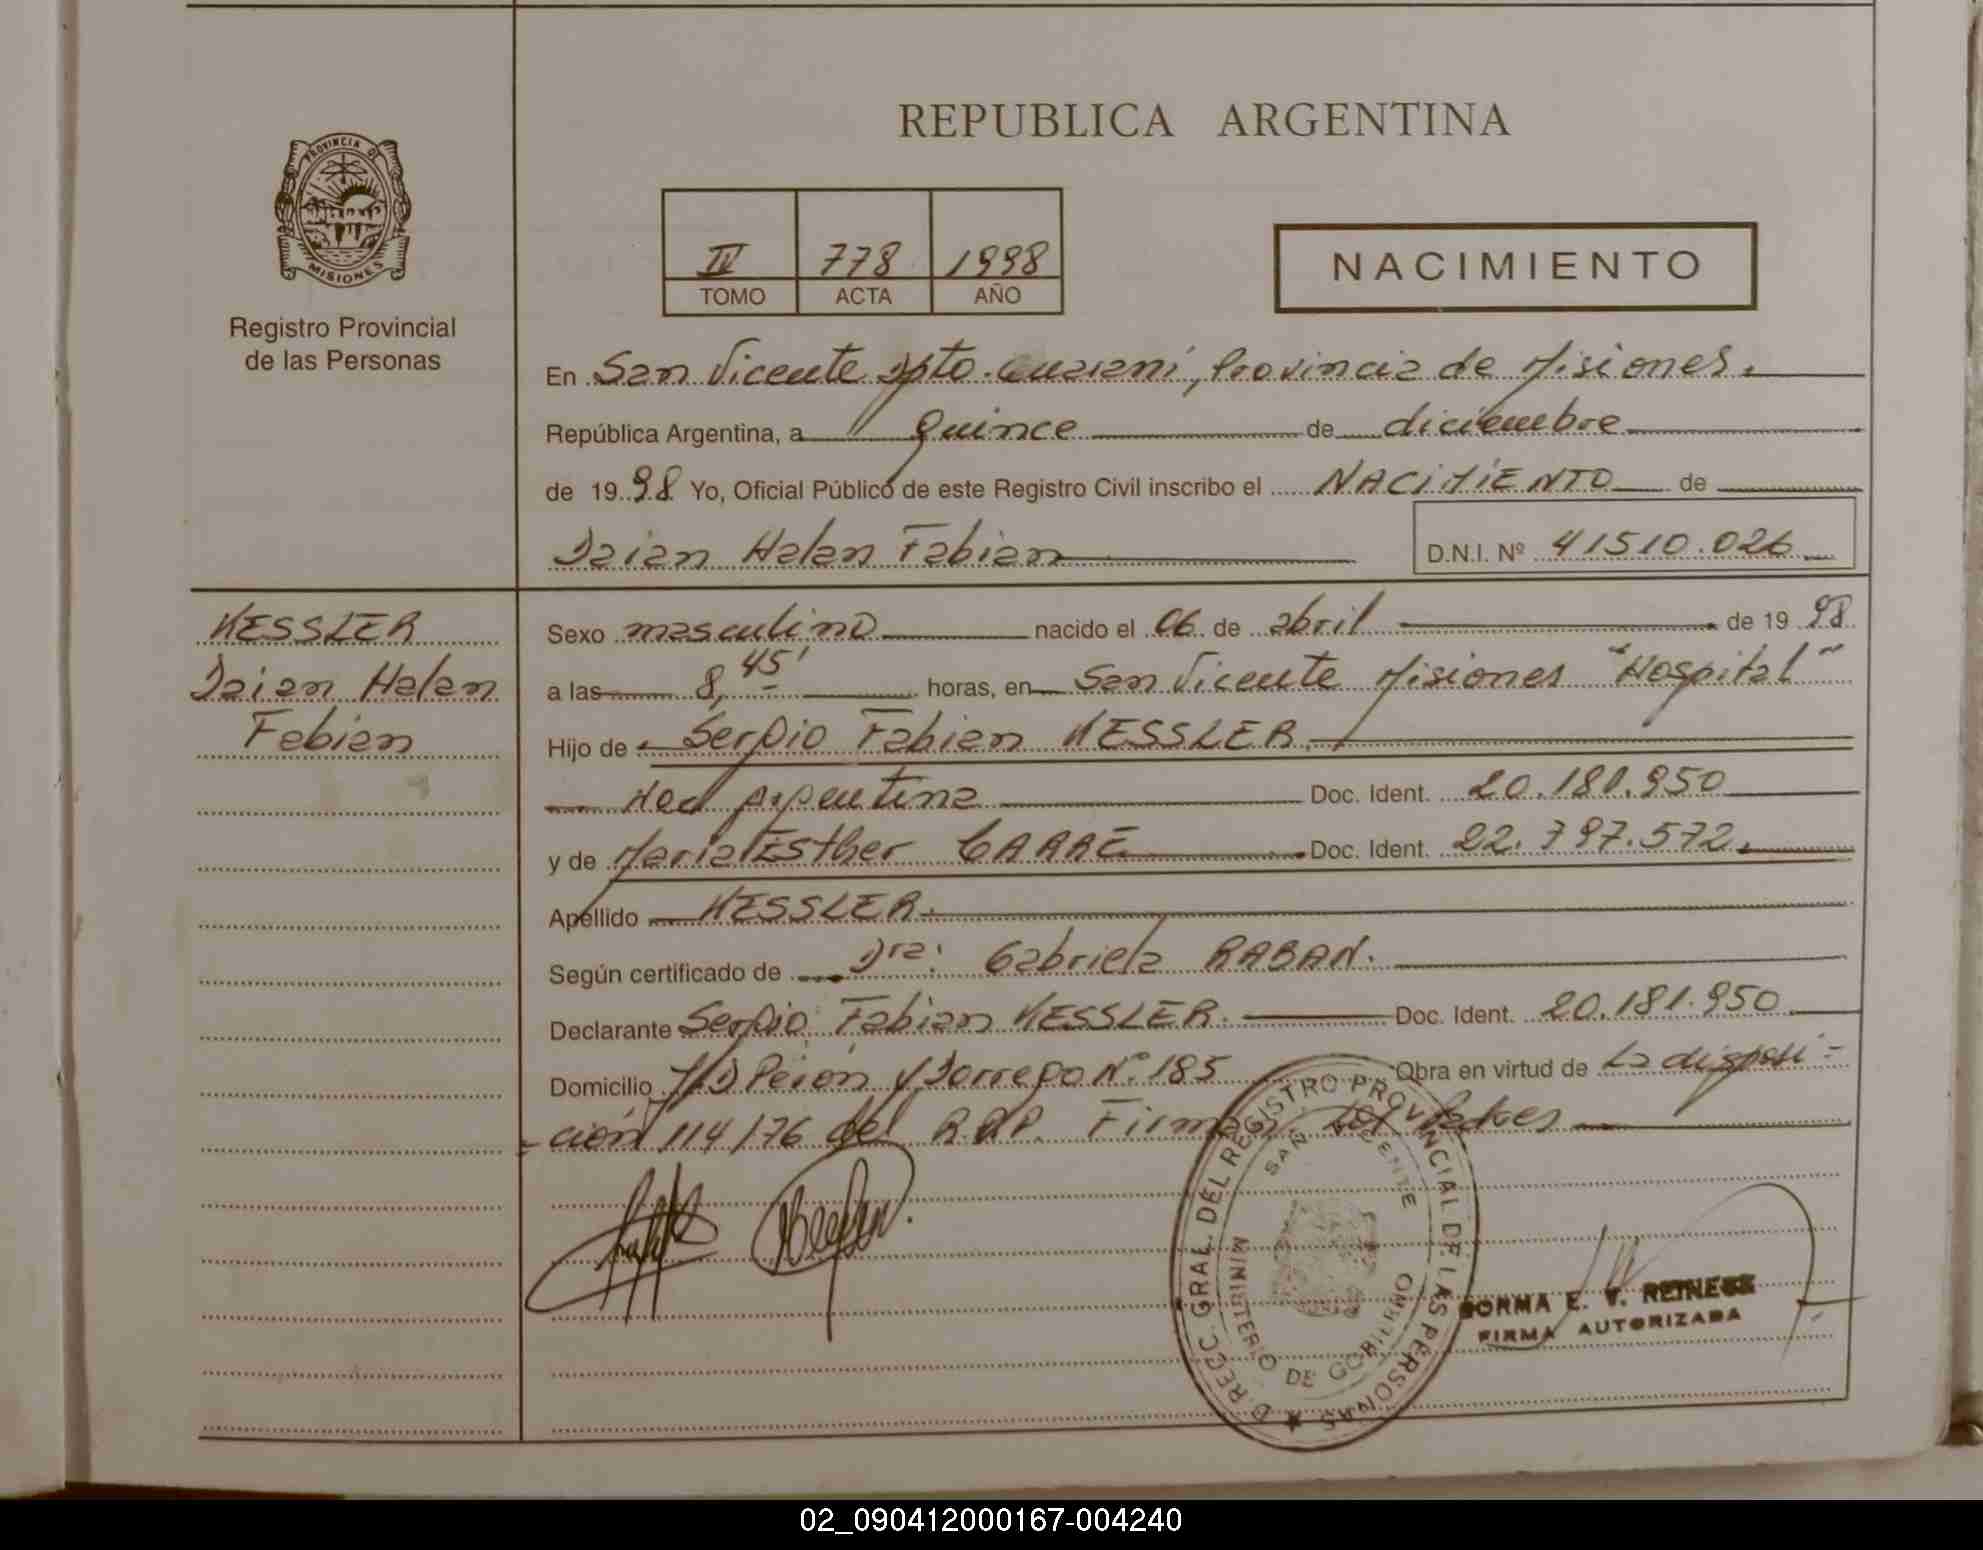 REPUBLICA ARGENTINA
PROVINCIA DE
MISIONES
Registro Provincial
de las Personas
IV 778 1998
TOMO ACTA AÑO
NACIMIENTO
En San Vicente Dpto. Guaraní, Provincia de Misiones.
República Argentina, a Quince de diciembre
de 1998 Yo, Oficial Público de este Registro Civil inscribo el NACIMIENTO de
Daian Halan Fabian D.N.I. Nº 41510.026
KESSLER
Daian Halan
Fabian
Sexo masculino nacido el 06 de abril de 1998
a las 8,45' horas, en San Vicente Misiones "Hospital"
Hijo de Sergio Fabian KESSLER
Nac. argentina Doc. Ident. 20.181.950
y de Maria Esther CARRÉ Doc. Ident. 22.797.572
Apellido KESSLER.
Según certificado de Dra: Gabriela RABAN.
Declarante Sergio Fabian KESSLER. Doc. Ident. 20.181.950
Domicilio J.D Perón y Dorrego Nº 185 Obra en virtud de La disposi-
-ción 114/76 del R.P.P. Firman los Padres
DIRECC. GRAL. DEL REGISTRO PROVINCIAL DE LAS PERSONAS
SAN VICENTE
MINISTERIO DE GOBIERNO
NORMA E. V. REINESS
FIRMA AUTORIZADA
02_090412000167-004240